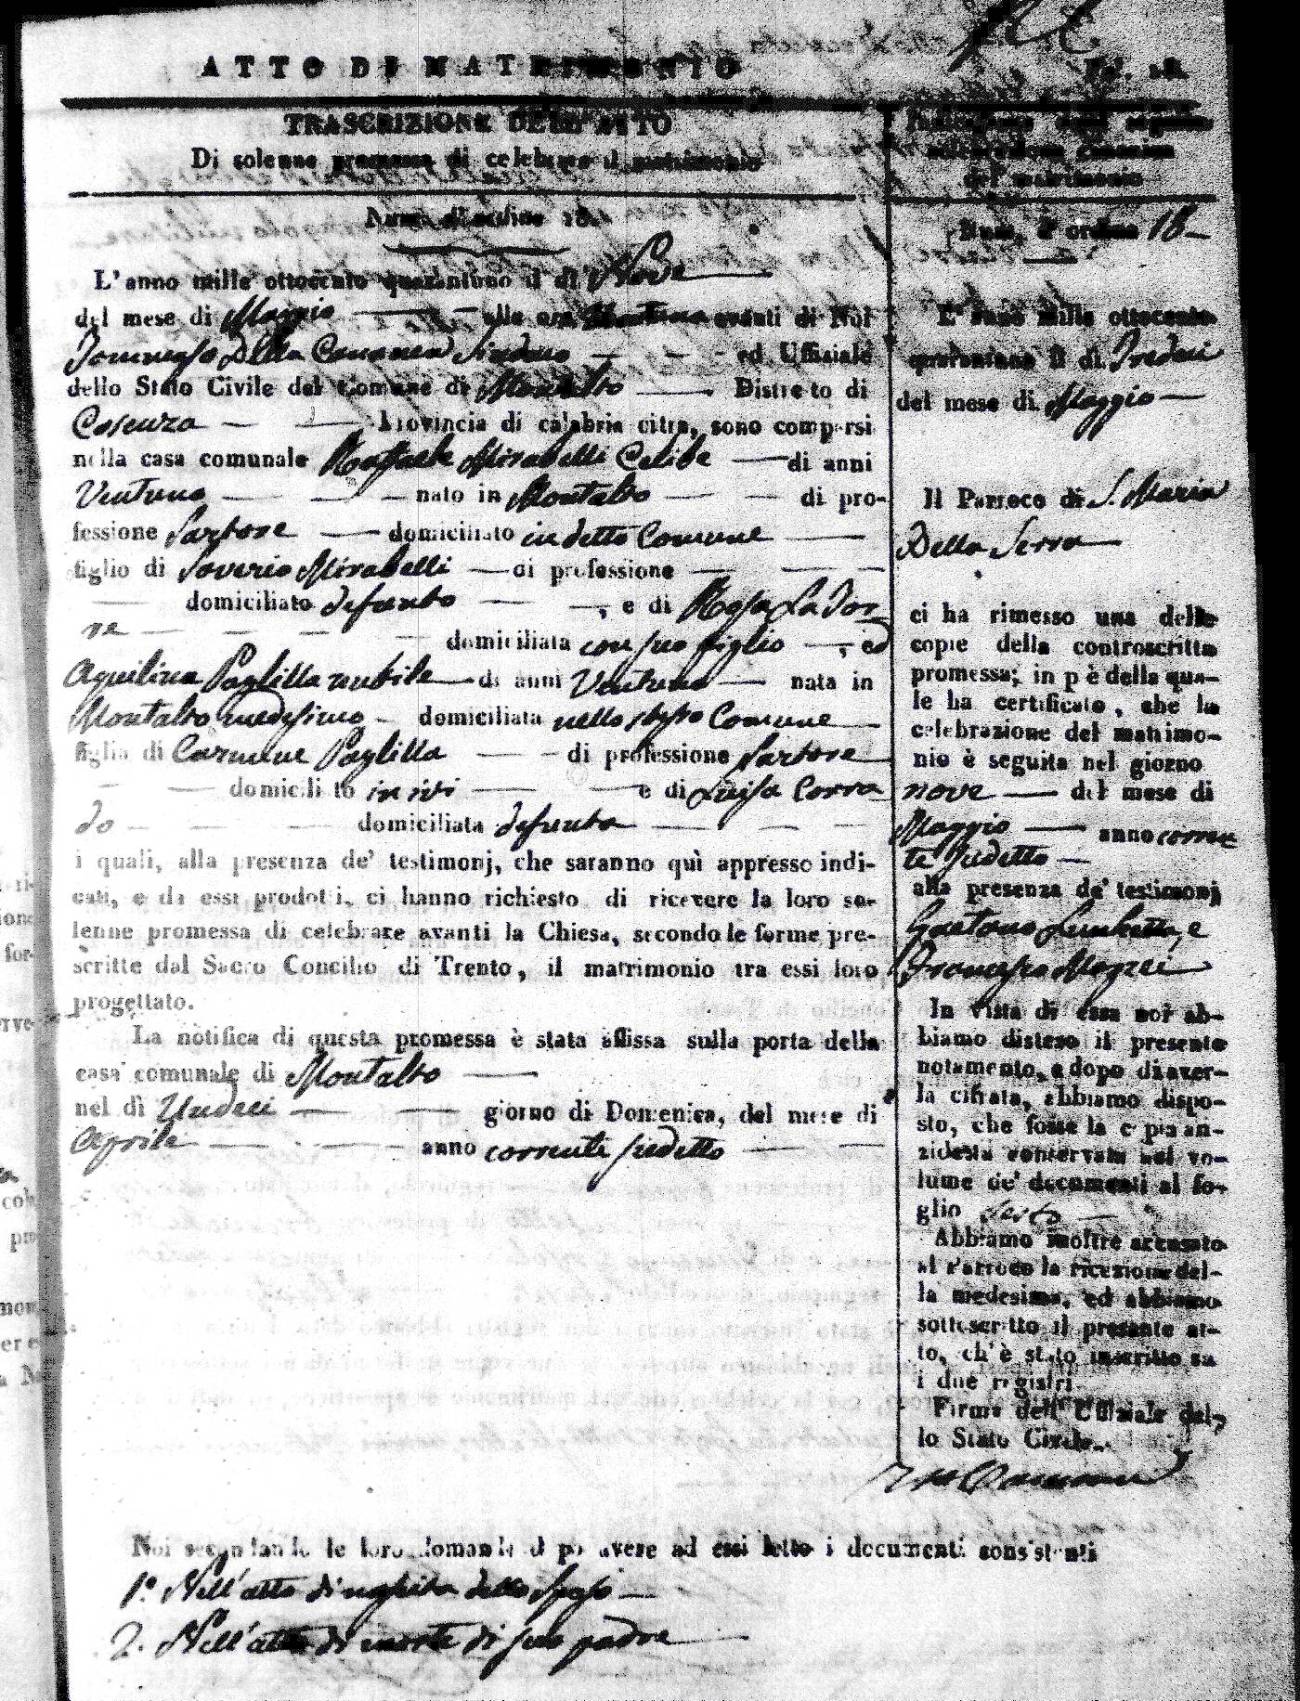 ATTO DI MATRIMONIO
TRASCRIZIONE DELL'ATTO
Di solenne promessa di celebrare il matrimonio
Num. d'ordine 18.
L'anno mille ottocento quarantuno il dì Nove
del mese di Maggio alle ore Ventuna avanti di Noi
Tommaso Della Sindaco ed Uffiziale
dello Stato Civile del Comune di Montalto Distretto di
Cosenza Provincia di calabria citra, sono comparsi
nella casa comunale Raffaele Mirabelli Celibe di anni
Ventuno nato in Montalto di pro-
fessione Sartore domiciliato in detto Comune
figlio di Saverio Mirabelli di professione
domiciliato defunto , e di Rosa La Tor-
re
domiciliata con suo figlio , ed
Aquilina Paglilla nubile di anni Ventuno nata in
Montalto medesimo domiciliata nello stesso Comune
figlia di Carmine Paglilla di professione Sartore
domiciliato in ivi e di Luisa Corra
do domiciliata defunta
i quali, alla presenza de' testimonj, che saranno quì appresso indi-
cati, e da essi prodotti, ci hanno richiesto di ricevere la loro so-
lenne promessa di celebrare avanti la Chiesa, secondo le forme pre-
scritte dal Sacro Concilio di Trento, il matrimonio tra essi loro
progettato.
La notifica di questa promessa è stata affissa sulla porta della
casa comunale di Montalto
nel dì Undeci giorno di Domenica, del mese di
Aprile anno corrente sudetto
Num. d'ordine 18
L'anno mille ottocento
quarantuno il dì Tredeci
del mese di Maggio
Il Parroco di S. Maria
Della Serra
ci ha rimesso una delle
copie della controscritta
promessa; in piè della qua-
le ha certificato, che la
celebrazione del matrimo-
nio è seguita nel giorno
nove del mese di
Maggio anno corren
te sudetto
alla presenza de' testimonj
Gaetano e
Francesco
In vista di essa noi ab-
biamo disteso il presente
notamento, e dopo di aver-
la cifrata, abbiamo dispo-
sto, che fosse la copia an-
zidetta conservata nel vo-
lume de' documenti al fo-
glio Sesto
Abbiamo inoltre accusato
al Parroco la ricezione del-
la medesima, ed abbiamo
sottoscritto il presente at-
to, ch'è stato inscritto su
i due registri.
Firma dell' Uffiziale del-
lo Stato Civile.
Noi secondando le loro domande dopo avere ad essi letto i documenti consistenti
1.° Nell'atto di nascita dello sposo
2. Nell'atto di morte di suo padre